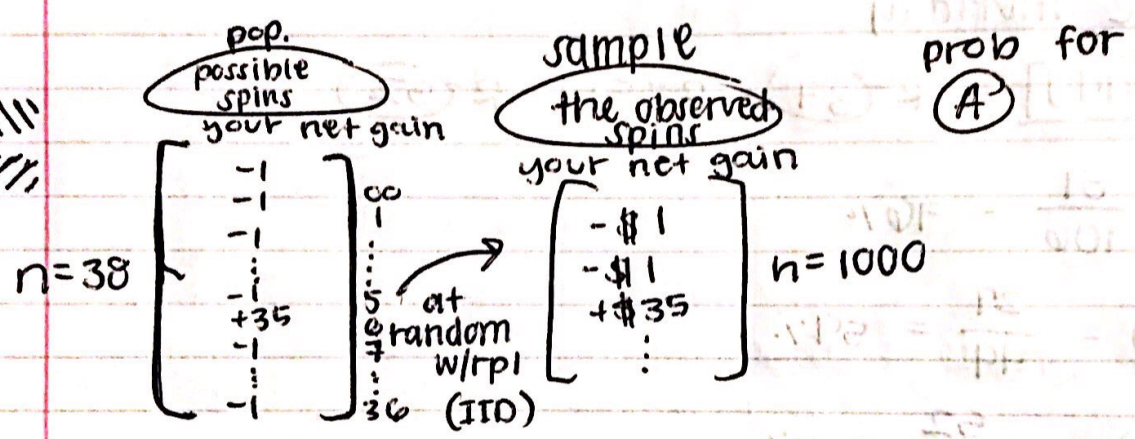 pop.
possible
spins
your net gain
n=38
-1
-1
-1
-1
+35
-1
-1
00
1
5
6
7
36
at
random
w/rpl
(IID)
sample
the observed
spins
your net gain
-$1
-$1
+$35
n=1000
prob for
A